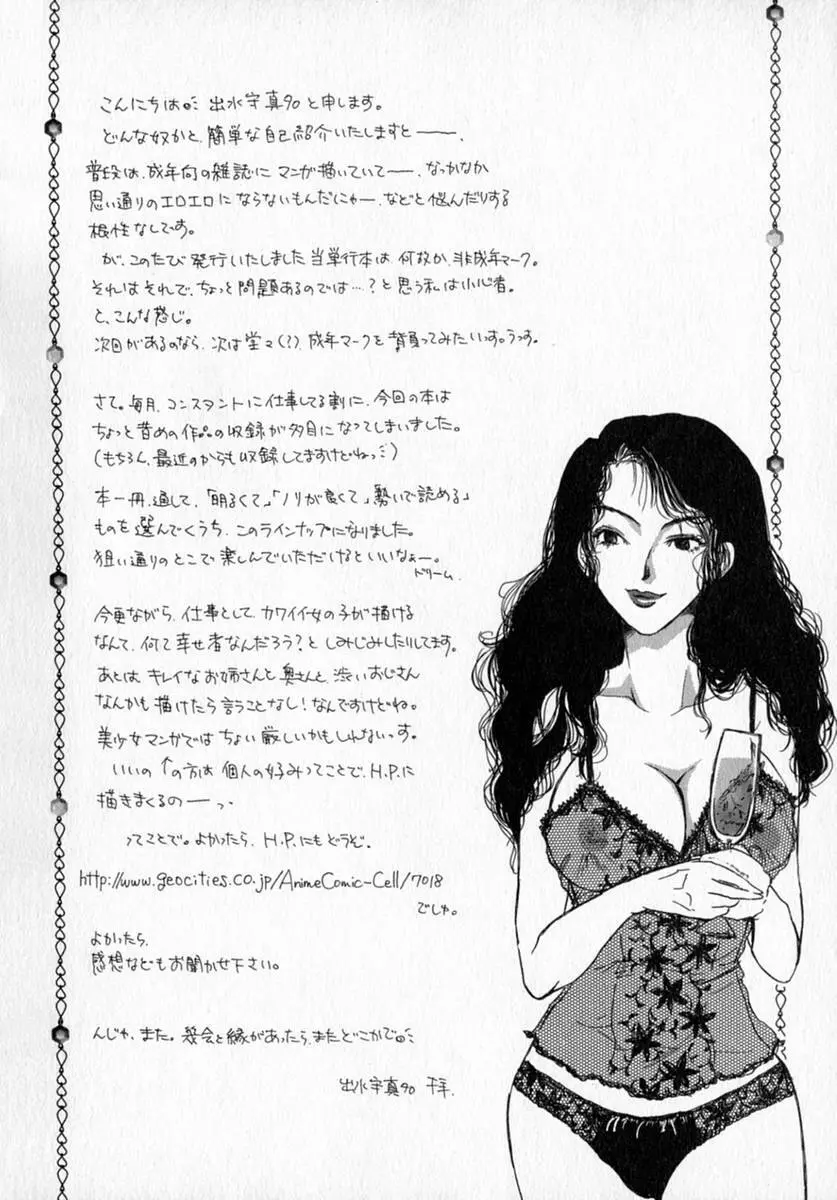 こんにちは。 出水宇真90と申します。
どんな奴かと、簡単な自己紹介いたしますと――、
普段は、成年向の雑誌に マンガ描いていて――、なっかなか
思い通りのエロエロに ならないもんだにゃー、などと悩んだりする
根性なしです。
が、このたび 発行いたしました 当単行本は 何故か、非成年マーク。
それはそれで、ちょっと問題あるのでは…?と思う私は小心者。
と、こんな感じ。
次回があるのなら、次は堂々(?)、成年マークを背負ってみたいっす。うっす。
さて。毎月、コンスタントに仕事してる割に、今回の本は
ちょっと昔めの作品の収録が多目になってしまいました。
(もちろん、最近のからも収録してますけどねっ)
本一冊、通して、「明るくて」「ノリが良くて」「勢いで読める」
ものを選んでくうち、このラインナップになりました。
狙い通りのとこで楽しんでいただけるといいなぁー。
ドリーム。
今更ながら、仕事として、カワイイ女の子が描ける
なんて、何て幸せ者なんだろう?と しみじみしたりしてます。
あとは キレイなお姉さんと奥さんと、渋いおじさん
なんかも描けたら言うことなし!なんですけどね。
美少女マンガでは ちょい厳しいかもしれないっす。
いいの ↑の方は 個人の好みってことで、H.P.に
描きまくるの――っ、
ってことで。よかったら、H.P.にもどうぞ。
http://www.geocities.co.jp/AnimeComic-Cell/7018
でしゅ。
よかったら、
感想などもお聞かせ下さい。
んじゃ、また。機会と縁があったら、またどこかで。
出水宇真90 干羊.